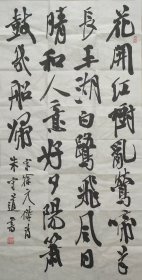 花開紅樹亂鶯啼草
長平湖白鷺飛風日
晴和人意好夕陽簫
鼓幾船歸
徐元傑詩
朱守道書